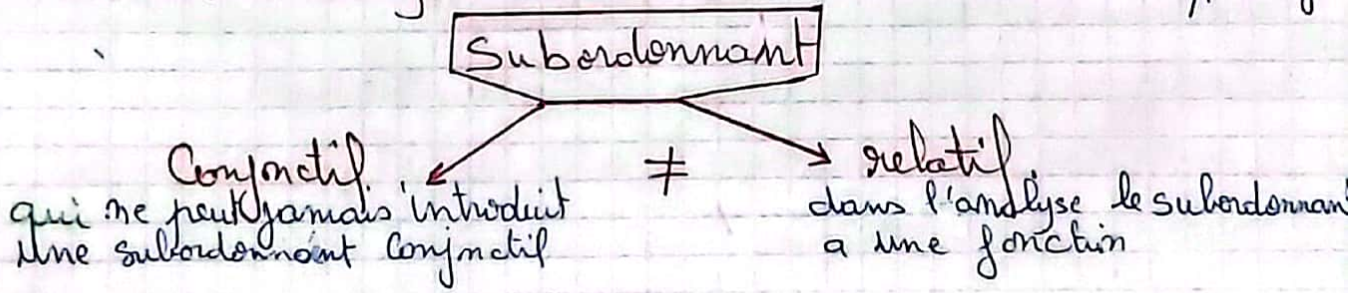 Subordonnant
Conjnctif ≠ relatif
qui ne peut jamais introduit
Une subordonnant Conjnctif
dans l'analyse le subordonnan
a une fonction